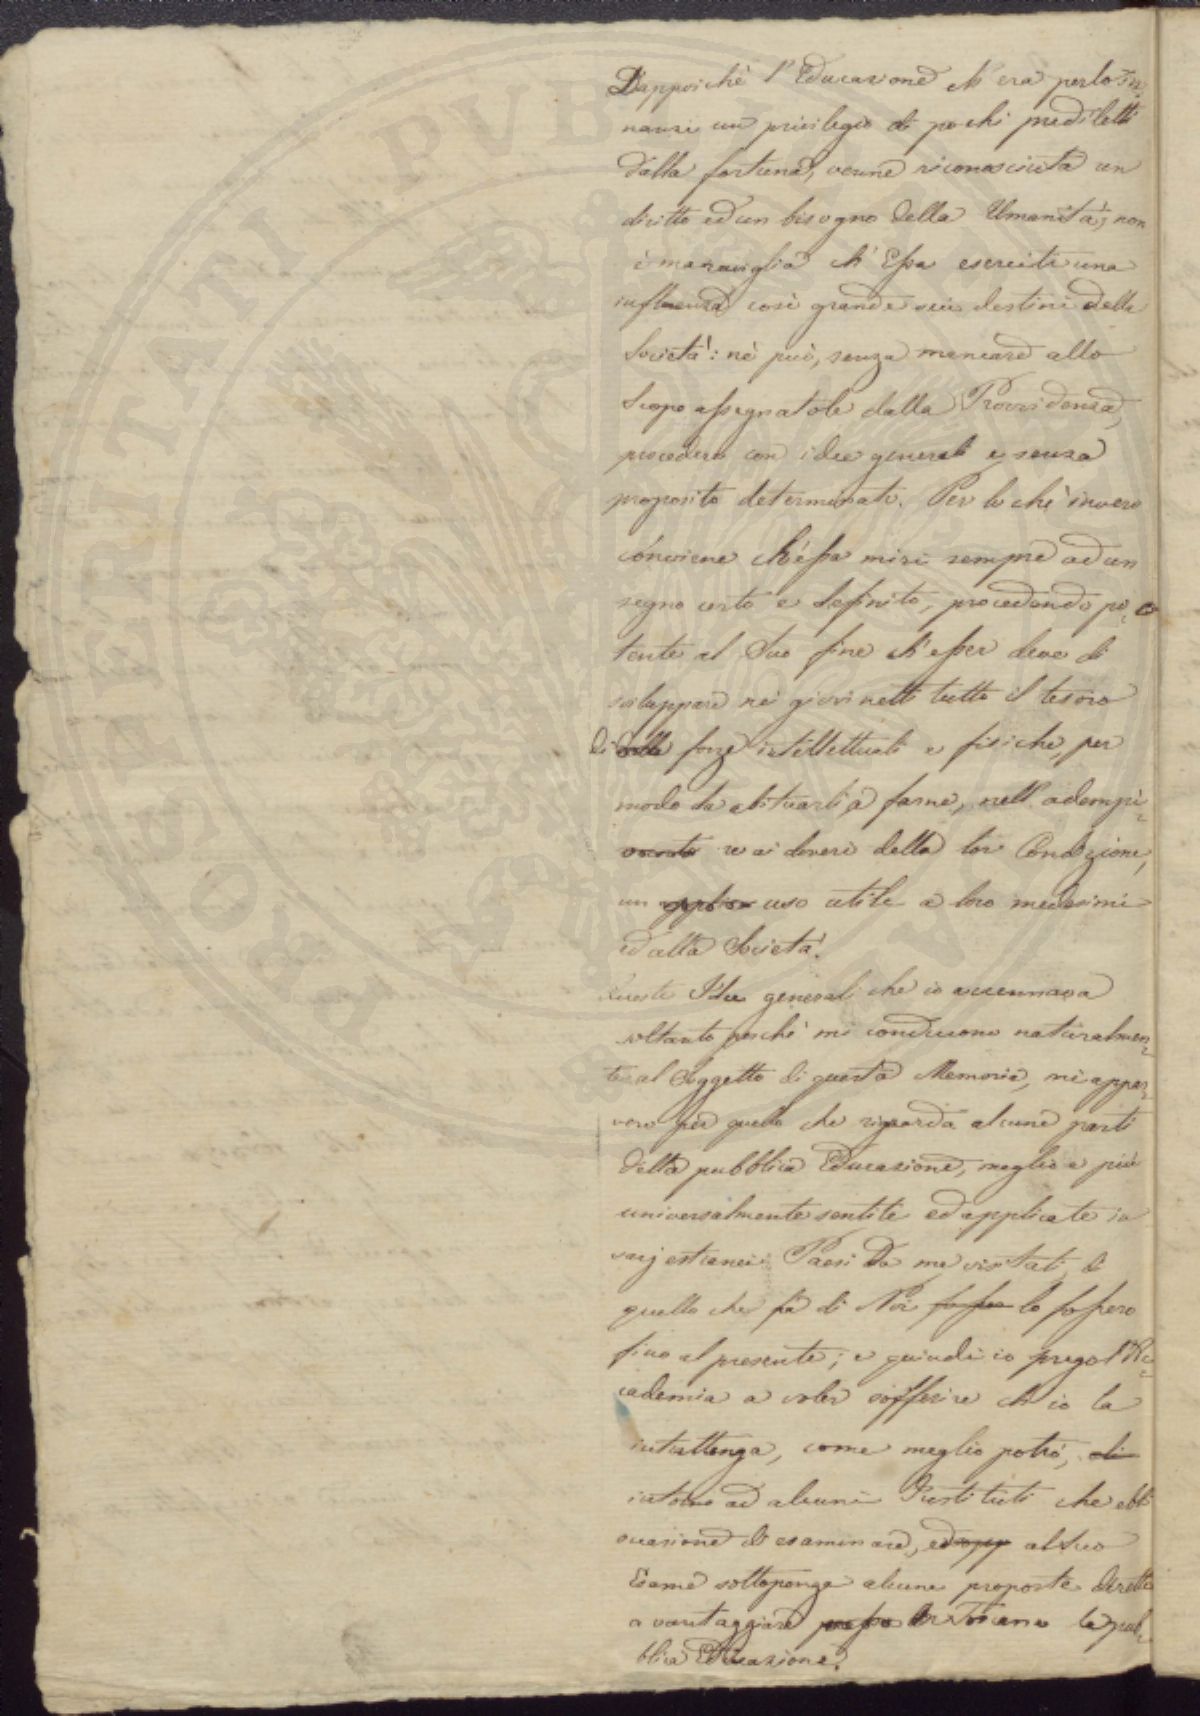 Dappoichè l'Educazione ch'era per lo in=
nanzi un privilegio di pochi prediletti
dalla fortuna, venne riconosciuta un
diritto ed un bisogno della Umanità; non
è maraviglia ch'Essa eserciti una
influenza così grande sui destini della
Società: nè può, senza mancare allo
Scopo assegnatole dalla Provvidenza,
procedere con idee generali e senza
proposito determinato. Per lo che invero
conviene ch'essa miri sempre ad un
segno certo e definito, procedendo po=
tente al suo fine ch'esser deve di
sviluppare nei giovinetti tutto il tesoro
di delle forze intellettuali e fisiche, per
modo da abituarli a farne, nell'adempi=
mento re ai doveri della lor Condizione,
un uso utile a loro medesimi
ed alla Società.
Queste Idee generali che io accennava
soltanto perchè mi conducono naturalmen=
te al Soggetto di questa Memoria, mi appar=
vero per quello che riguarda alcune parti
della pubblica Educazione, meglio e più
universalmente sentite ed applicate in
varj estranei Paesi da me visitati, di
quello che fra di Noi fosser lo fossero
fino al presente; e quindi io prego l'Ac=
cademia a voler sofferire ch'io la
intrattenga, come meglio potrò, di
intorno ad alcuni Instituti che ebbi
occasione di esaminare, ed al suo
Esame sottoponga alcune proposte dirette
a vantaggiare in Toscana la pub=
blica Educazione.
SOCIETATI PVBLI